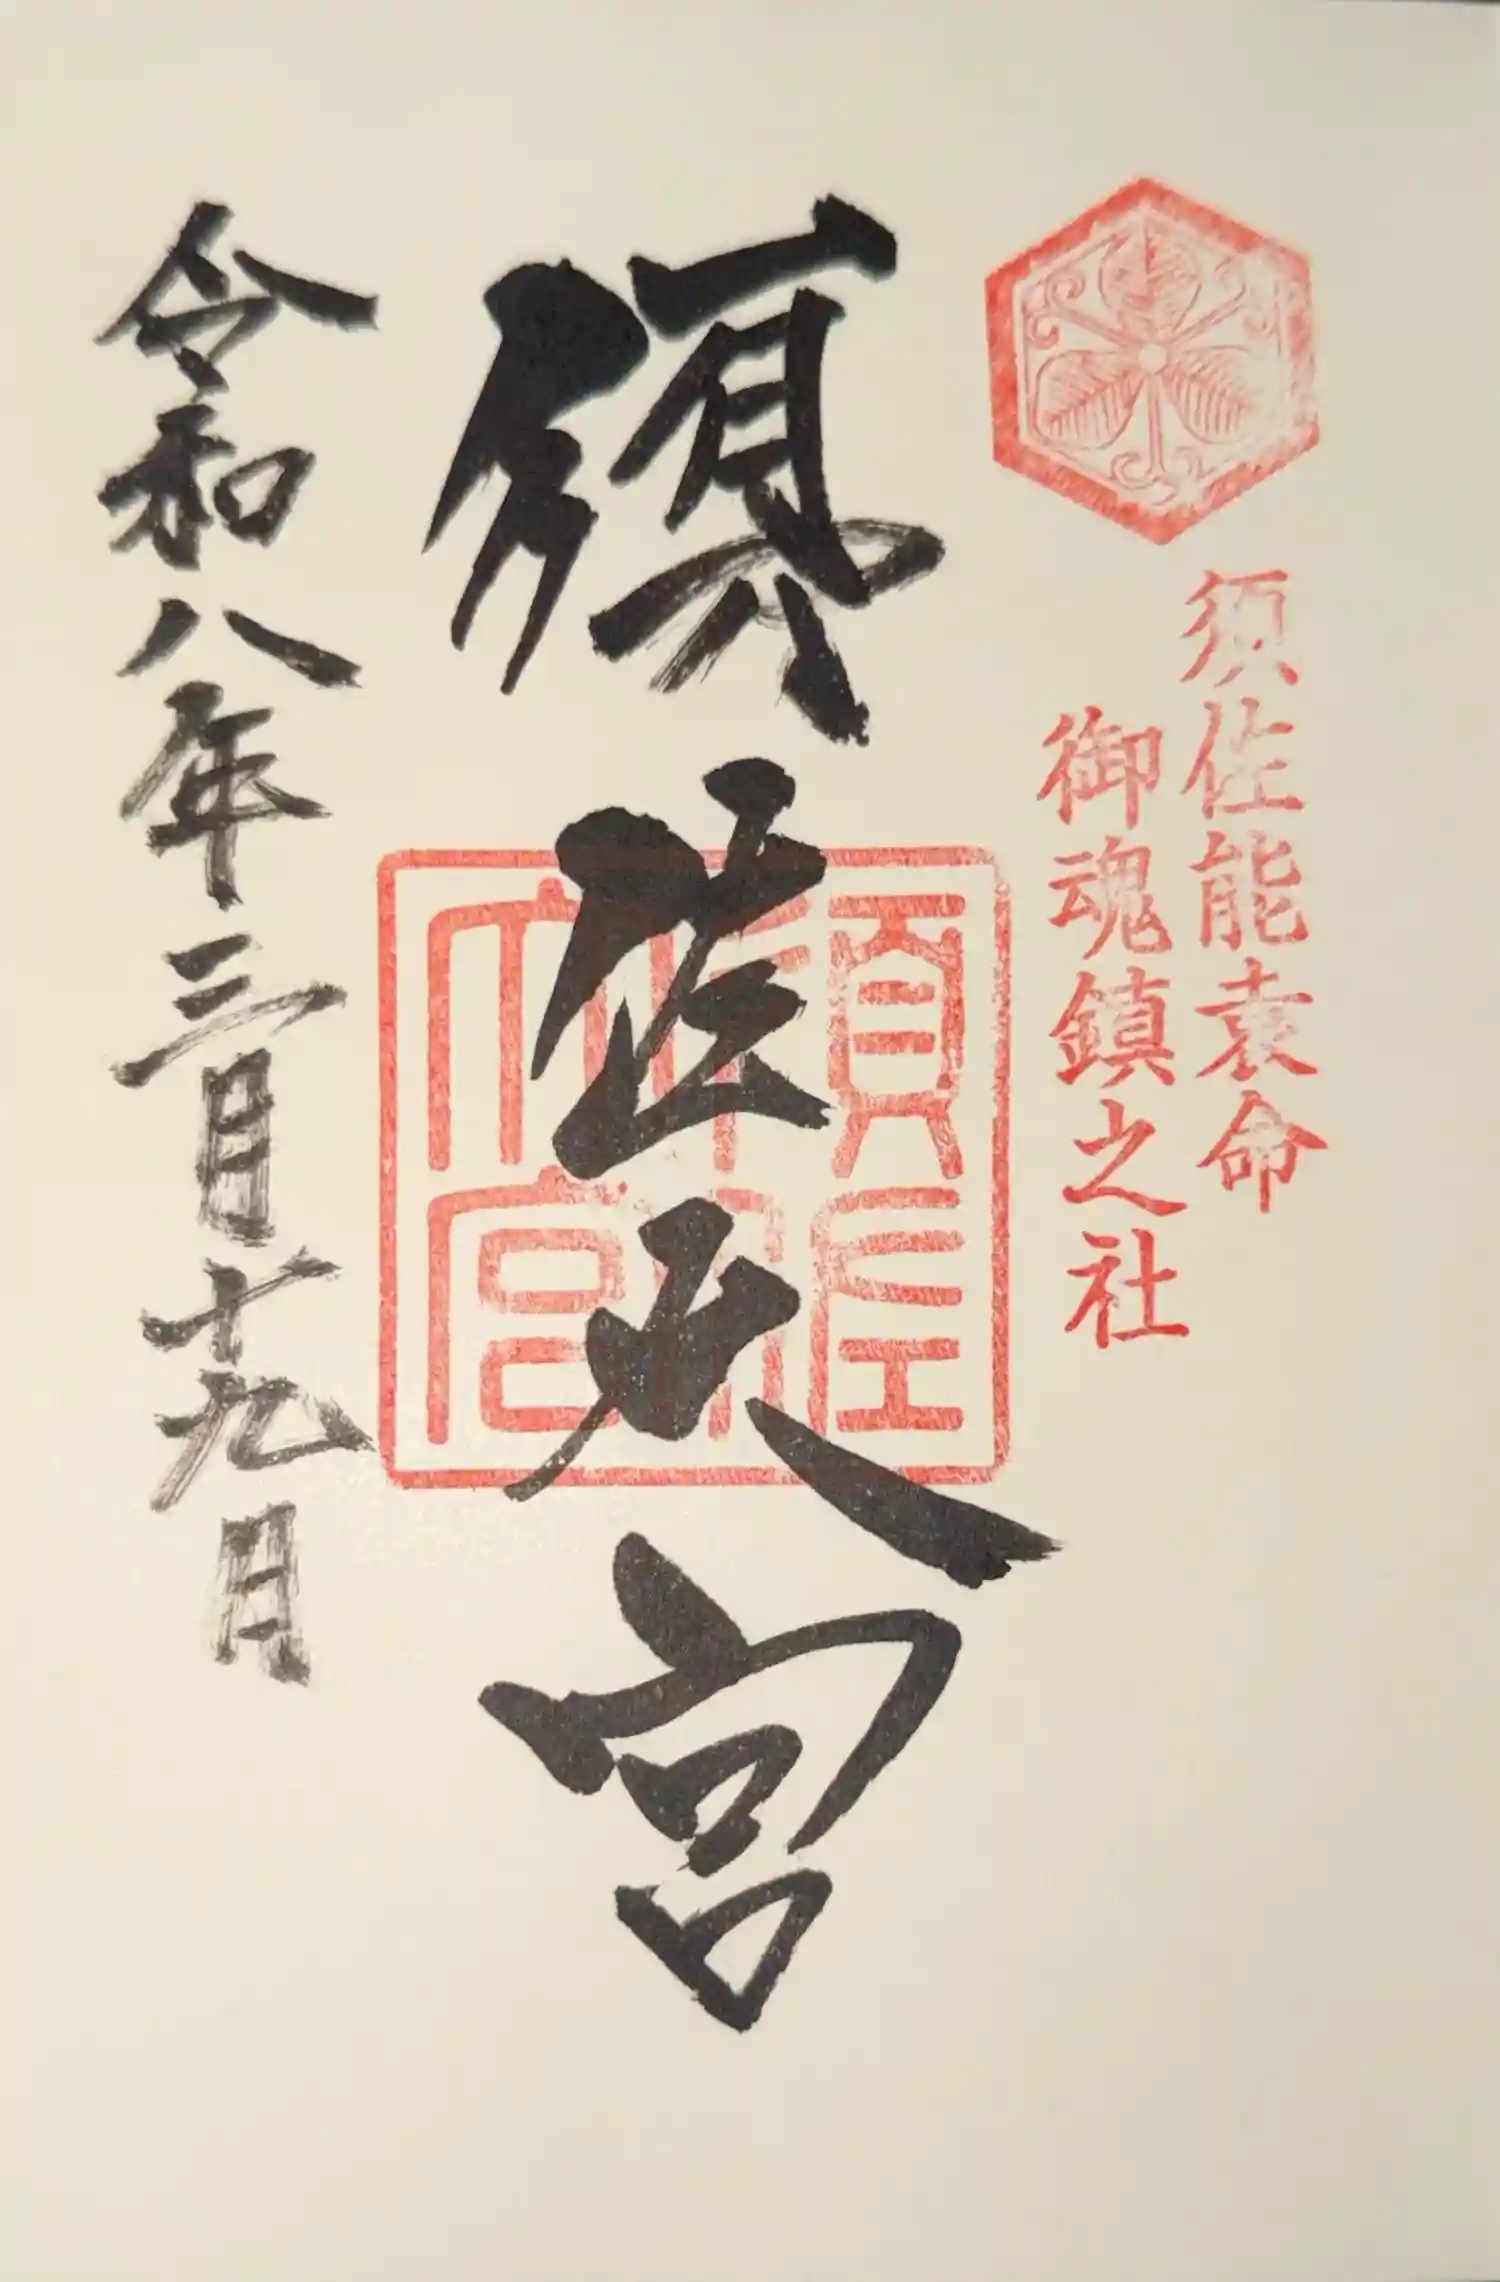 須佐能袁命
御魂鎮之社
須佐大宮
須佐
大宮
令和八年三月十九日